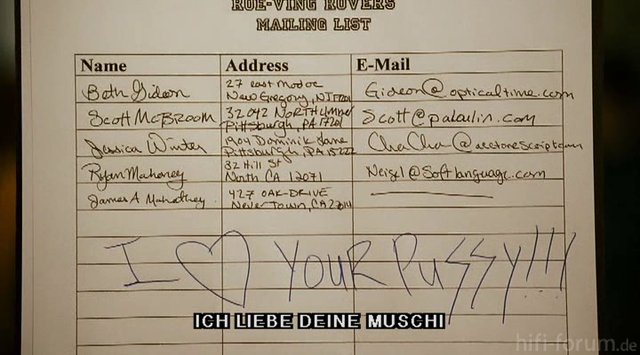 ROE-VING ROVERS
MAILING LIST
Name Address E-Mail
Beth Gideon 27 east Modoc Gideon@opticaltime.com
New Gregory, NJ
Scott McBroom 32042 North Scott@palaulin.com
Pittsburgh, PA 17201
Jessica Winter 1904 Dominik Lane ChaCha@
Pittsburgh, PA 15222
Ryan Mahoney 32 Hill St Neigel@Softlanguage.com
North CA 12071
James A 427 OAK DRIVE
Never Town, CA
I ♡ YOUR PUSSY!!!
ICH LIEBE DEINE MUSCHI
hifi-forum.de